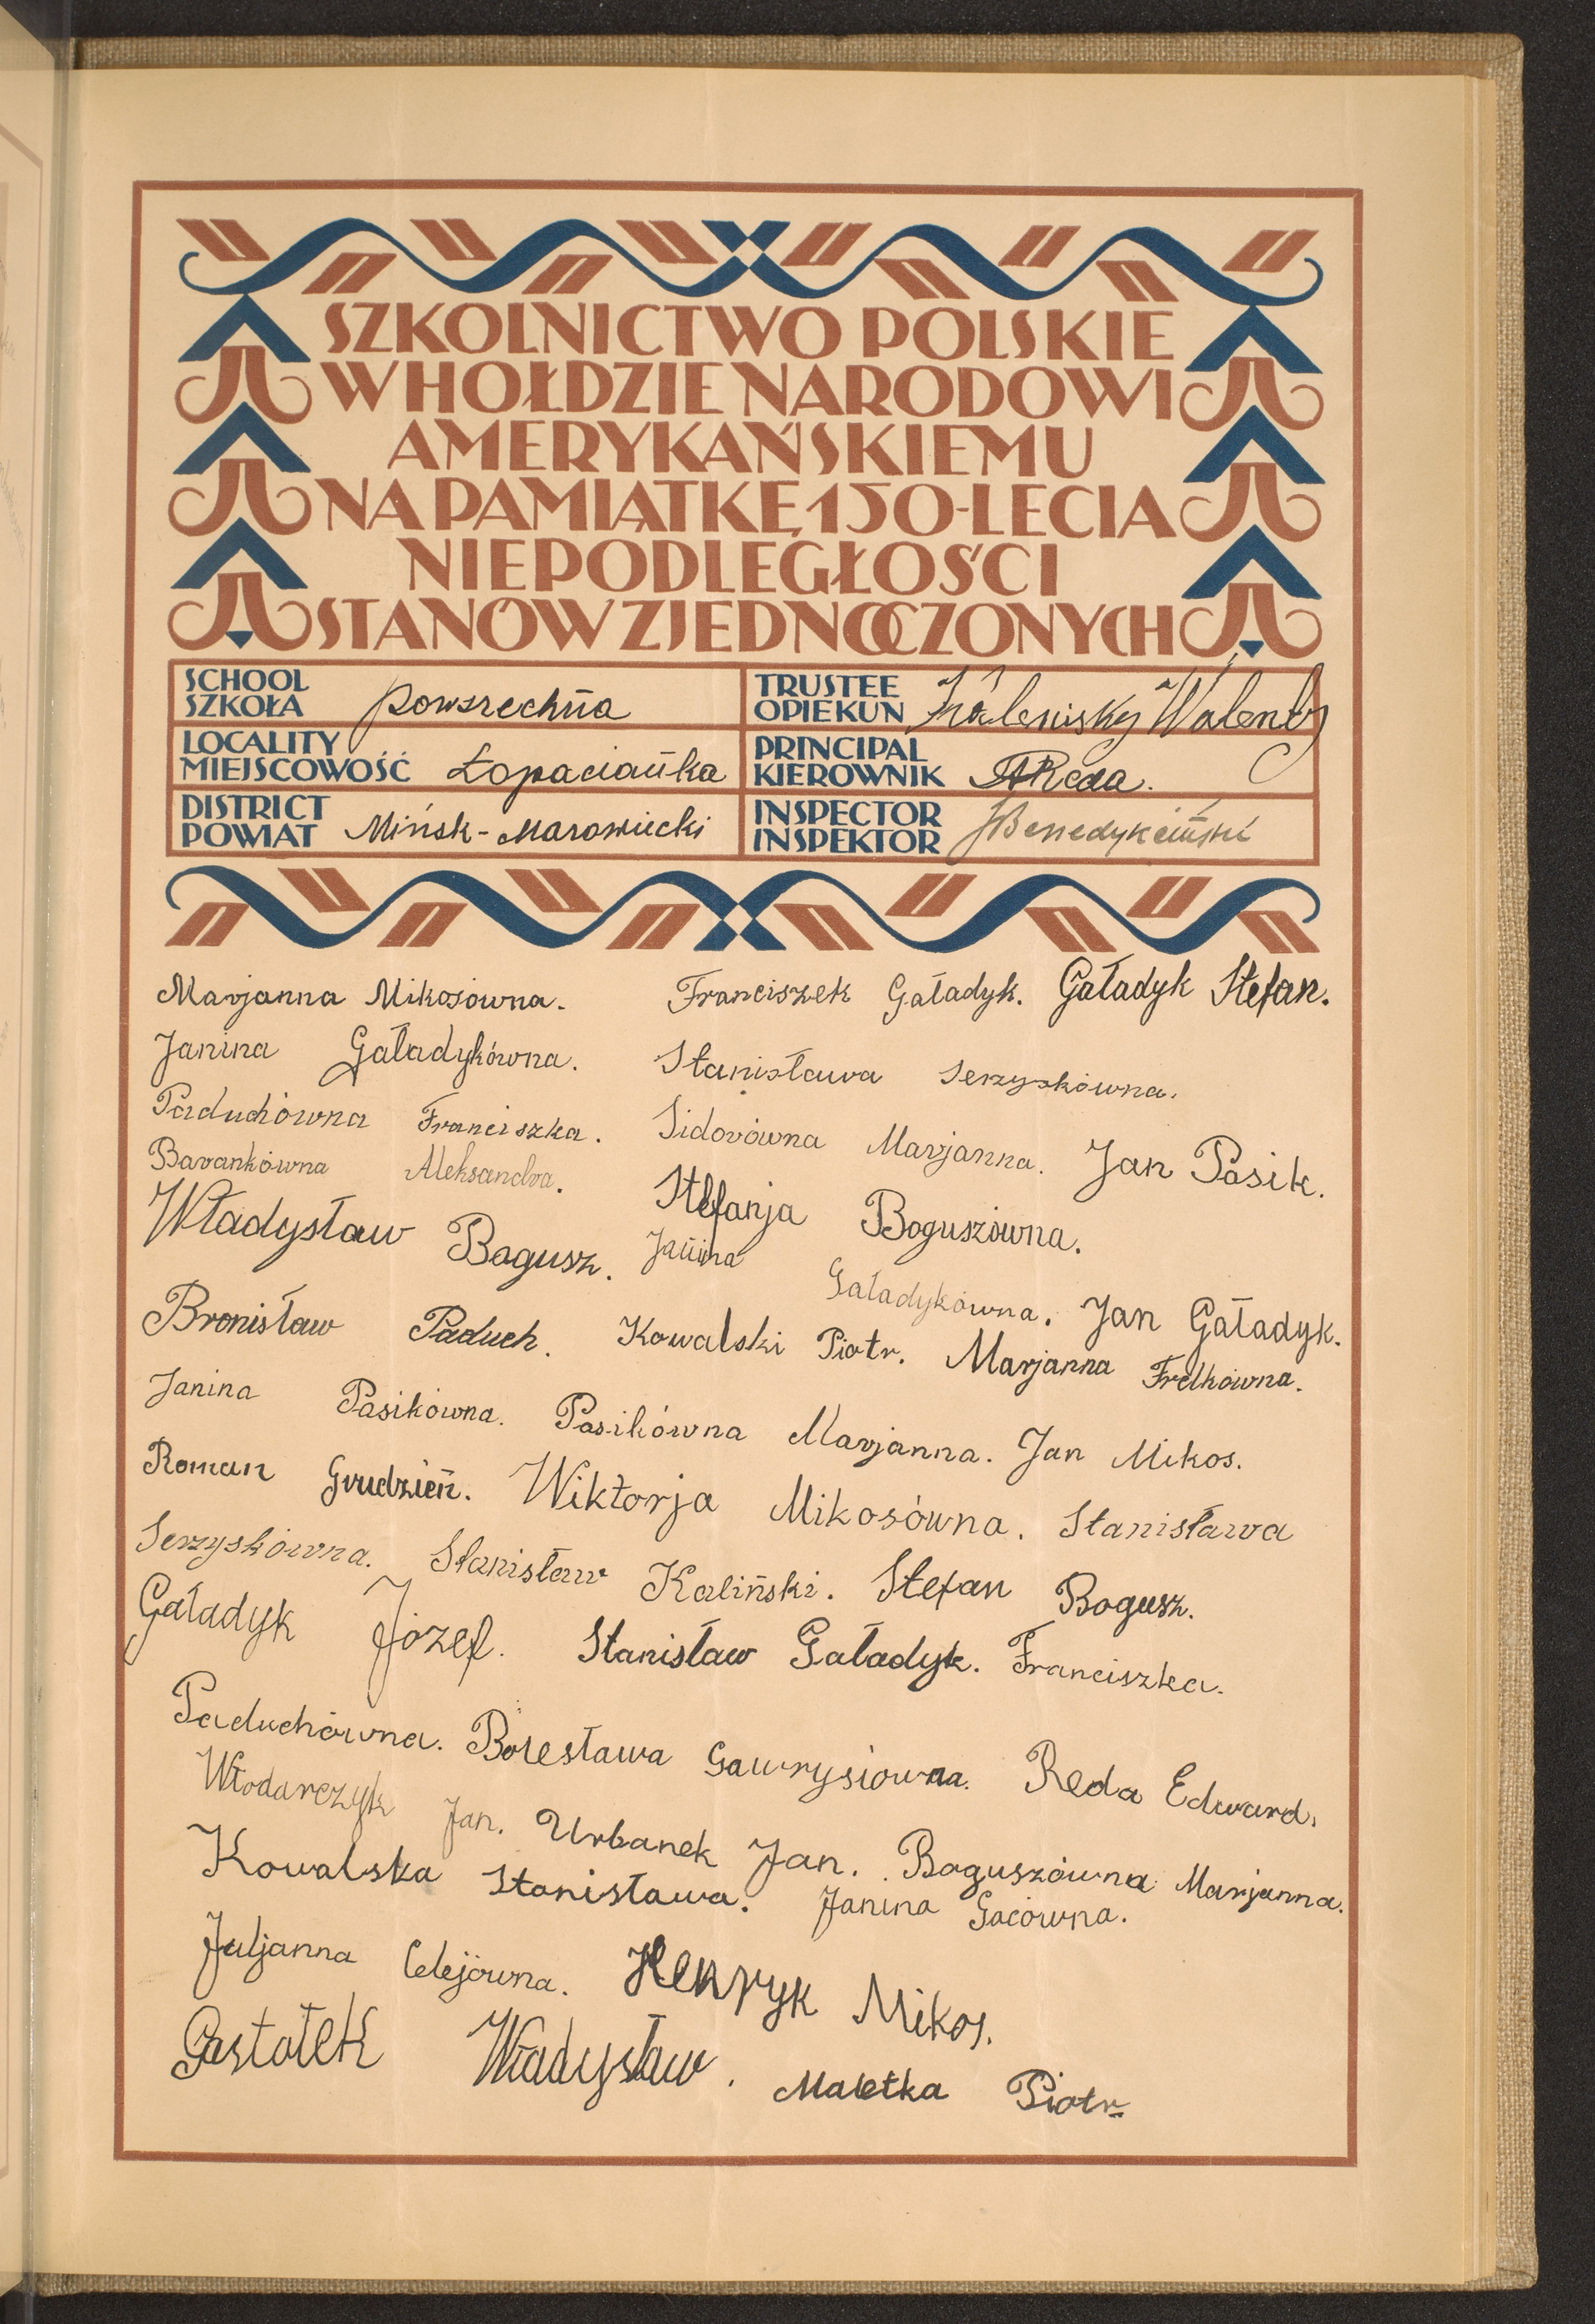 SZKOLNICTWO POLSKIE
W HOŁDZIE NARODOWI
AMERYKAŃSKIEMU
NA PAMIĄTKĘ 150-LECIA
NIEPODLEGŁOŚCI
STANÓW ZJEDNOCZONYCH
SCHOOL
SZKOŁA powszechna
TRUSTEE
OPIEKUN Walenty
LOCALITY
MIEJSCOWOŚĆ Łopacianka
PRINCIPAL
KIEROWNIK AReda.
DISTRICT
POWIAT Mińsk-Mazowiecki
INSPECTOR
INSPEKTOR
Marjanna Mikosówna. Franciszek Gaładyk. Gaładyk Stefan.
Janina Gaładykówna. Stanisława Serzyskówna.
Paduchówna Franciszka. Sidorówna Marjanna. Jan Pasik.
Barankówna Aleksandra. Stefanja Boguszówna.
Władysław Bogusz. Janina Gaładykówna. Jan Gaładyk.
Bronisław Paduch. Kowalski Piotr. Marjanna Frelkówna.
Janina Pasikówna. Pasikówna Marjanna. Jan Mikos.
Roman Grudzień. Wiktorja Mikosówna. Stanisława
Serzyskówna. Stanisław Kaliński. Stefan Bogusz.
Gaładyk Józef. Stanisław Gaładyk. Franciszka.
Paduchówna. Bolesława Gawrysiowna. Reda Edward.
Włodarczyk Jan. Urbanek Jan. Boguszówna Marjanna.
Kowalska Stanisława. Janina Gacówna.
Juljanna Celejówna. Henryk Mikos.
Gastołek Władysław. Maletka Piotr